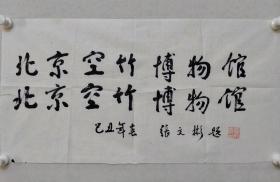 北京空竹博物馆
北京空竹博物馆
己丑年春 张文彬题